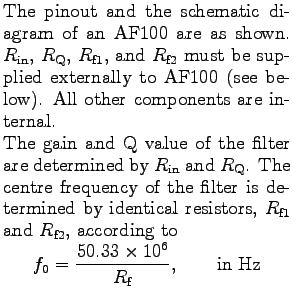 The pinout and the schematic di-
agram of an AF100 are as shown.
R_in, R_Q, R_f1, and R_f2 must be sup-
plied externally to AF100 (see be-
low). All other components are in-
ternal.
The gain and Q value of the filter
are determined by R_in and R_Q. The
centre frequency of the filter is de-
termined by identical resistors, R_f1
and R_f2, according to
f_0 = 50.33 × 10^6 / R_f, in Hz